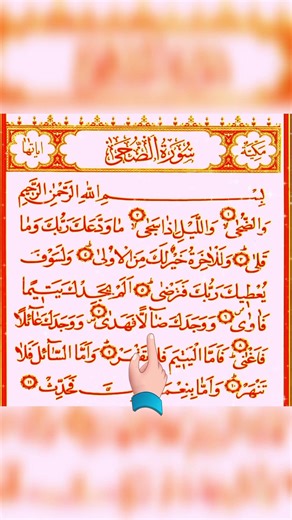 مَكِّيَّة سُورَةُ الضُّحٰى اٰيَاتُهَا
بِسْمِ اللهِ الرَّحْمٰنِ الرَّحِيْمِ
وَالضُّحٰى ۝۱ وَالَّيْلِ اِذَا سَجٰى ۝۲ مَا وَدَّعَكَ رَبُّكَ وَمَا
قَلٰى ۝۳ وَلَلْاٰخِرَةُ خَيْرٌ لَّكَ مِنَ الْاُوْلٰى ۝۴ وَلَسَوْفَ
يُعْطِيْكَ رَبُّكَ فَتَرْضٰى ۝۵ اَلَمْ يَجِدْكَ يَتِيْمًا
فَاٰوٰى ۝۶ وَوَجَدَكَ ضَآلًّا فَهَدٰى ۝۷ وَوَجَدَكَ عَآئِلًا
فَاَغْنٰى ۝۸ فَاَمَّا الْيَتِيْمَ فَلَا تَقْهَرْ ۝۹ وَاَمَّا السَّآئِلَ فَلَا
تَنْهَرْ ۝۱۰ وَاَمَّا بِنِعْمَةِ فَحَدِّثْ ۝۱۱